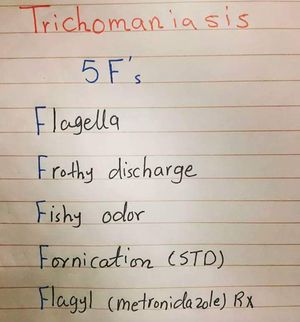 Trichomaniasis
5 F's
Flagella
Frothy discharge
Fishy odor
Fornication (STD)
Flagyl (metronidazole) Rx